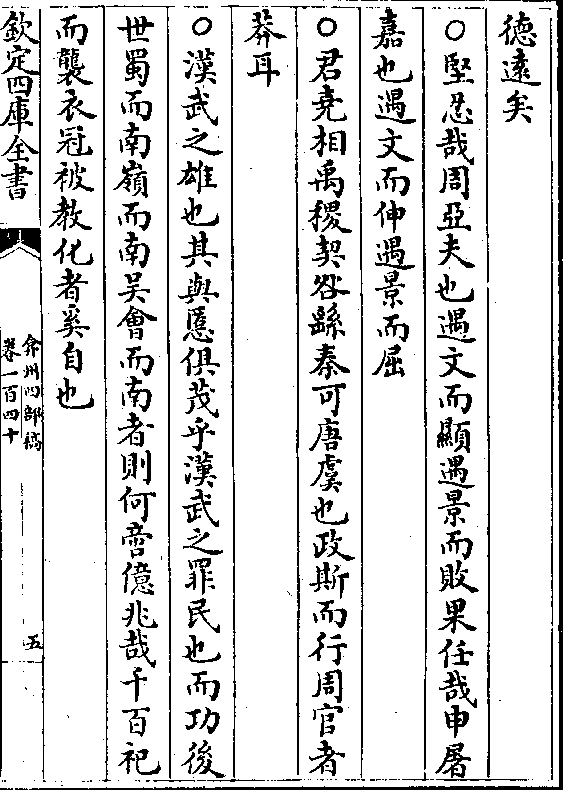 德遠矣
○堅忍哉周亞夫也遇文而顯遇景而敗果任哉申屠
嘉也遇文而伸遇景而屈
○君堯相禹稷契咎繇秦可唐虞也政斯而行周官者
莽耳
○漢武之雄也其與慝俱茂乎漢武之罪民也而功後
世蜀而南嶺而南吴會而南者則何啻億兆哉千百祀
而襲衣冠被教化者奚自也
欽定四庫全書
弇州四部稿
卷一百四十
五